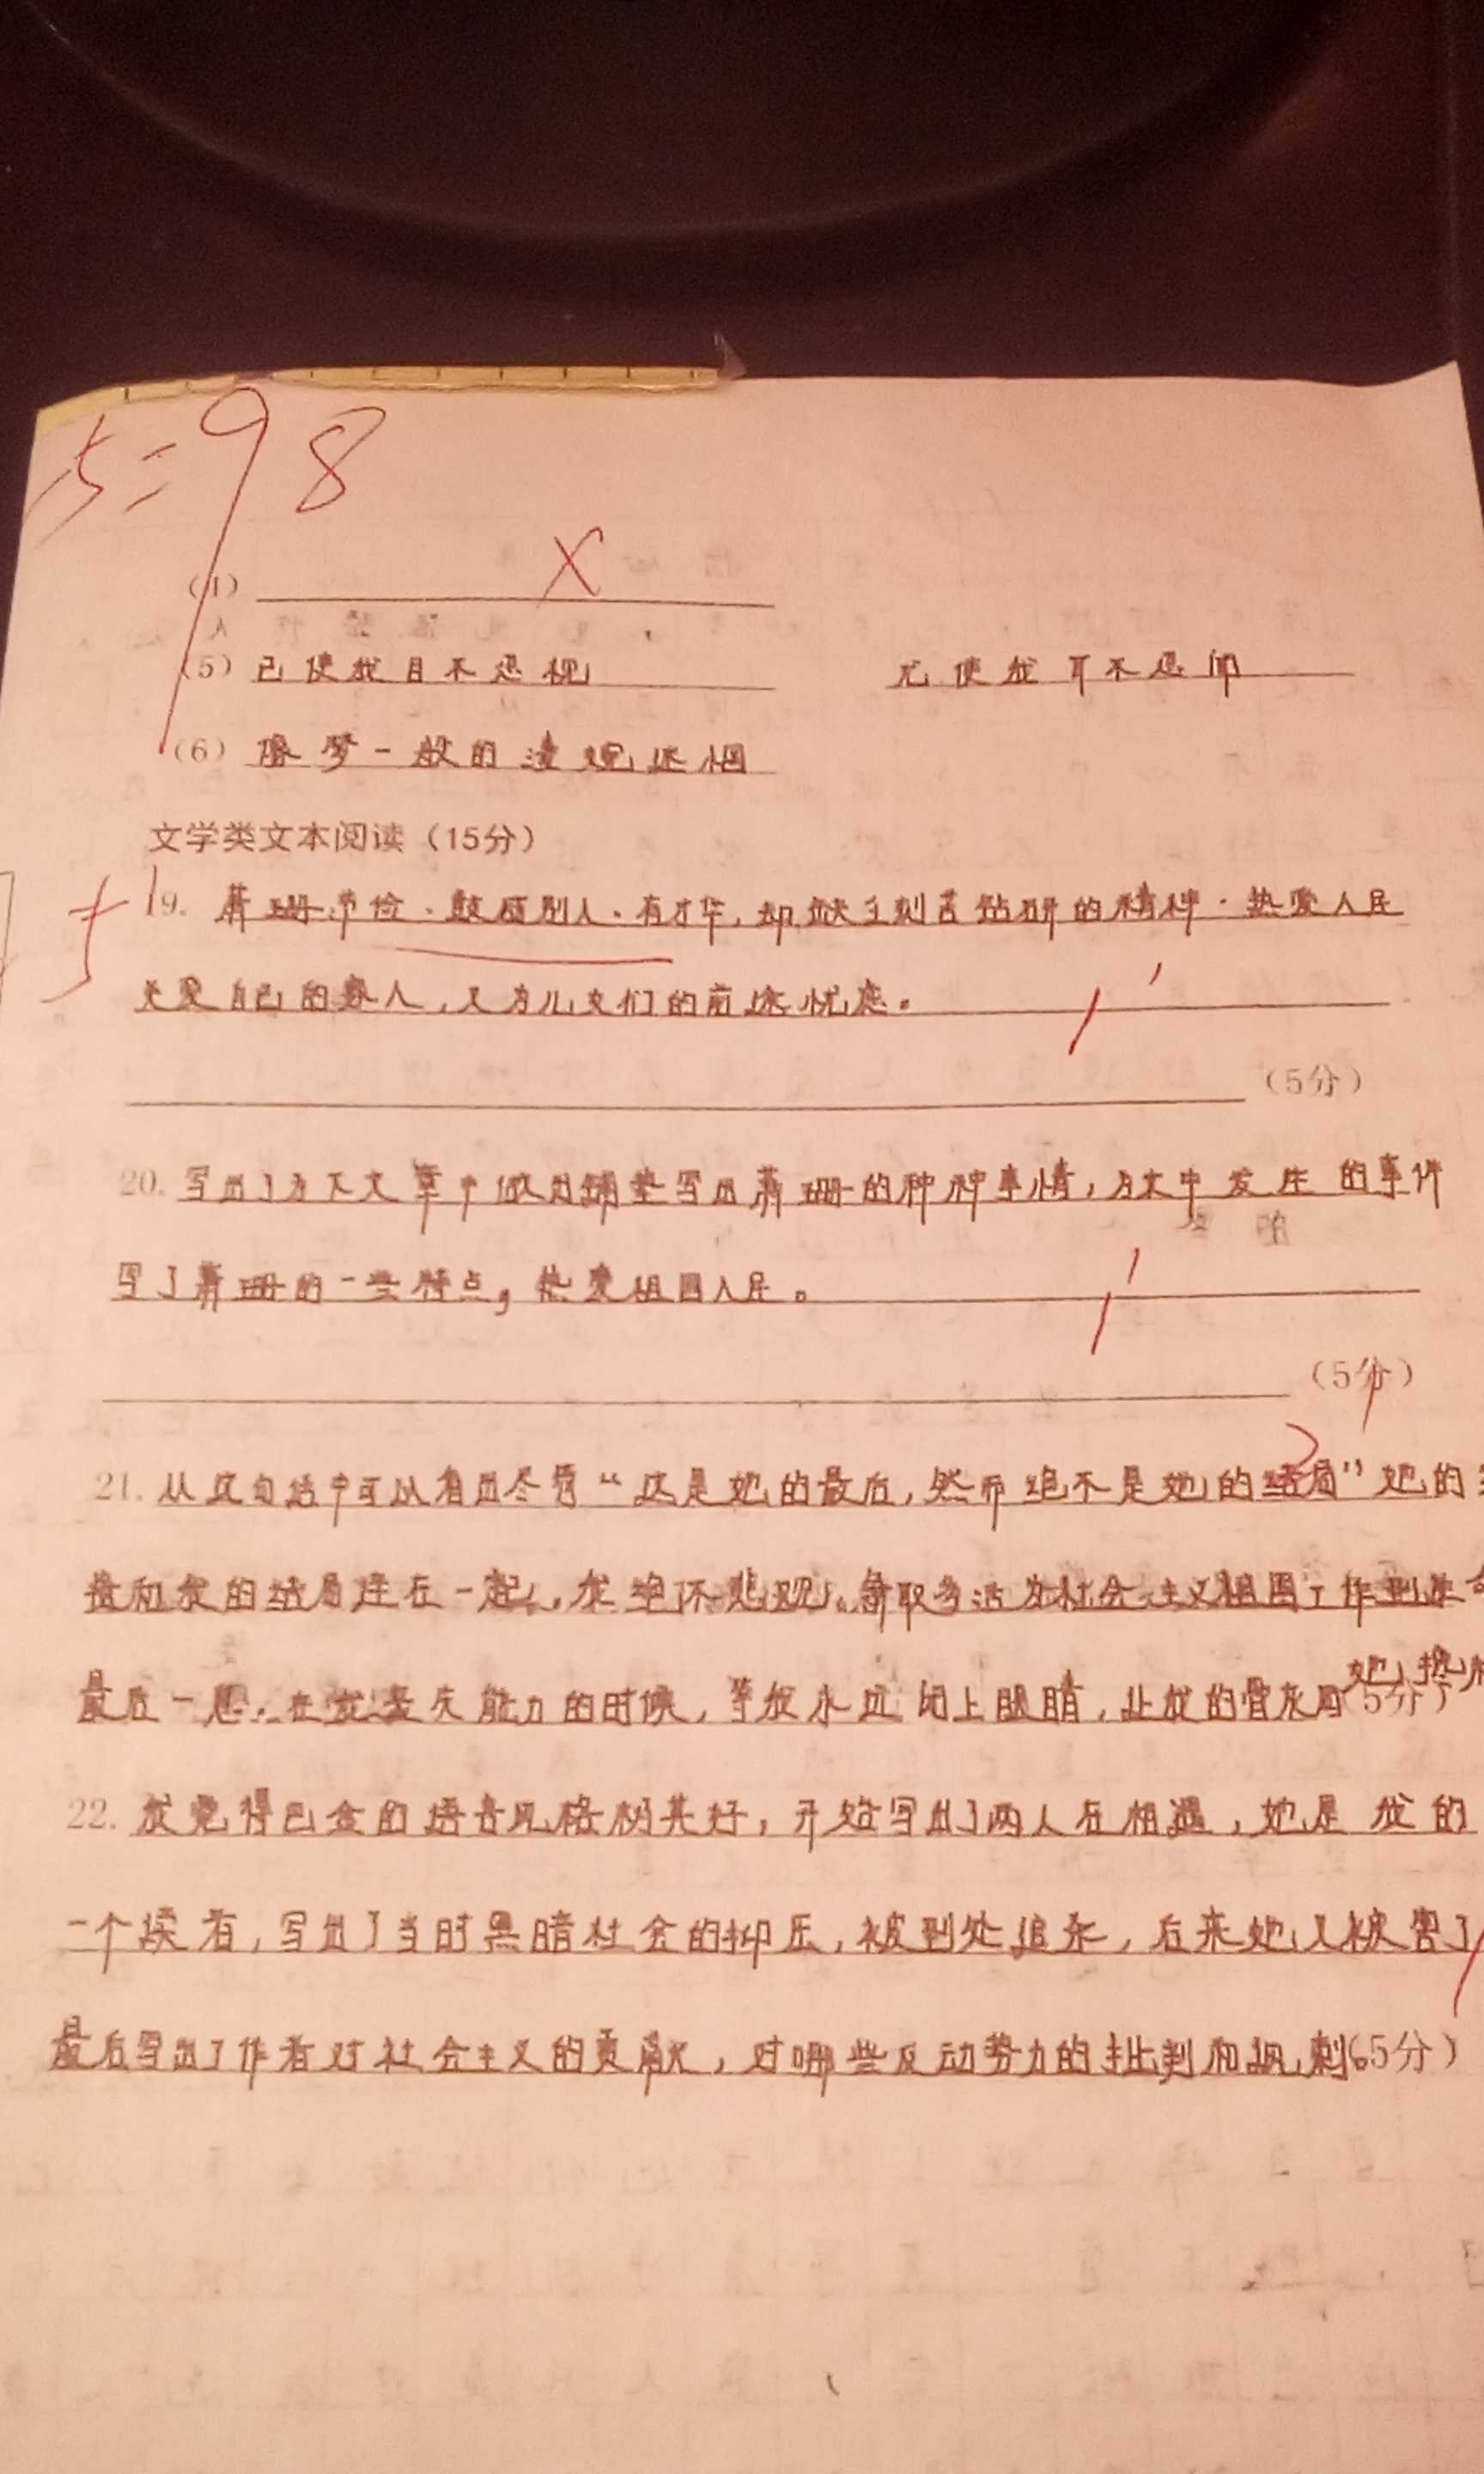 5=98
(4) ×
(5) 已使我目不忍视 尤使我耳不忍闻
(6) 像梦一般的凄婉迷惘
文学类文本阅读（15分）
5
19. 萧珊节俭、鼓励别人、有才华，却缺乏刻苦钻研的精神、热爱人民
关爱自己的家人，又为儿女们的前途忧虑。
1
（5分）
20. 写出了为下文章中做出铺垫写出萧珊的种种事情，文中发生的事件
写了萧珊的一些特点，热爱祖国人民。
1
（5分）
2
21. 从这句话中可以看出尽管“这是她的最后，然而绝不是她的结局”她的
和我的结局连在一起，我绝不悲观。争取多活为社会主义祖国工作到生命
最后一息。在我丧失能力的时候，等我永远闭上眼睛，让我的骨灰同她
（5分）
22. 我觉得巴金的语言风格极其好，开始写出了两人在相遇，她是我的
一个读者，写出了当时黑暗社会的抑压，被到处追杀，后来她又被害了
1
最后写出了作者对社会主义的贡献，对哪些反动势力的批判和讽刺。（5分）